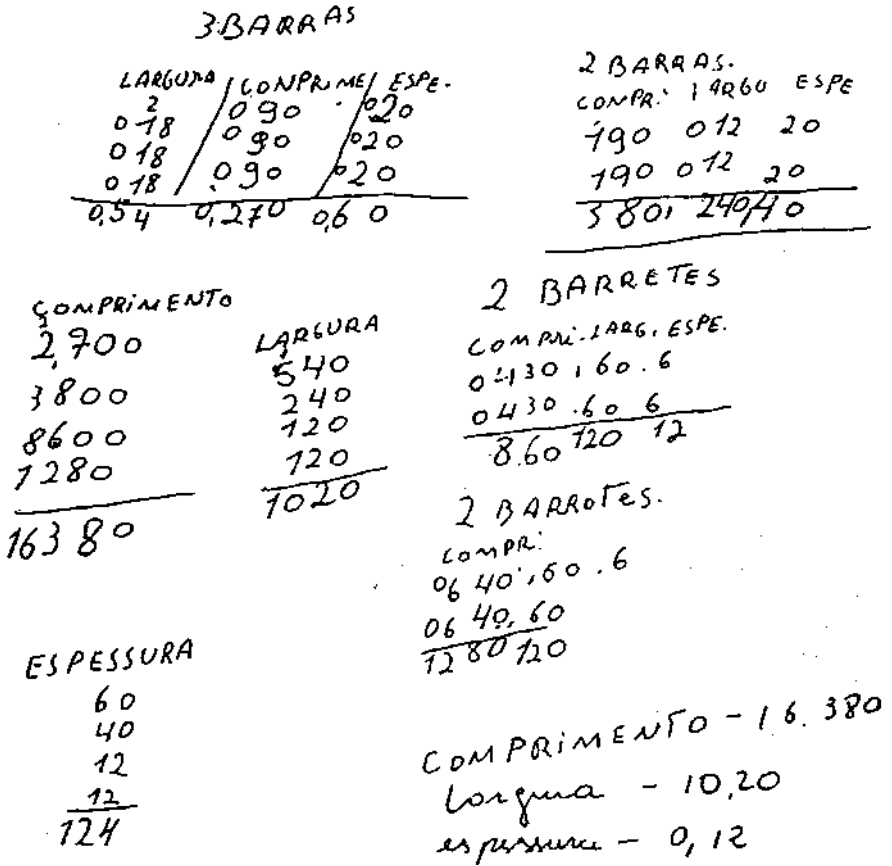 3 BARRAS
LARGURA / COMPRIME / ESPE.
2
0 18 / 0 90 / 020
0 18 0 90 020
0 18 / 0 90 / 020
0,54 0,270 0,60
2 BARRAS.
COMPR. LARGU ESPE
190 012 20
190 012 20
380, 240,40
COMPRIMENTO
2,700
3800
8600
1280
16380
LARGURA
540
240
120
120
1020
2 BARRETES
COMPRI. LARG. ESPE.
0430,60.6
0430.60 6
8.60 120 12
2 BARROTES.
COMPR:
06 40,60.6
06 40,60
1280 120
ESPESSURA
60
40
12
12
124
COMPRIMENTO - 16.380
Largura - 10,20
espessura - 0,12